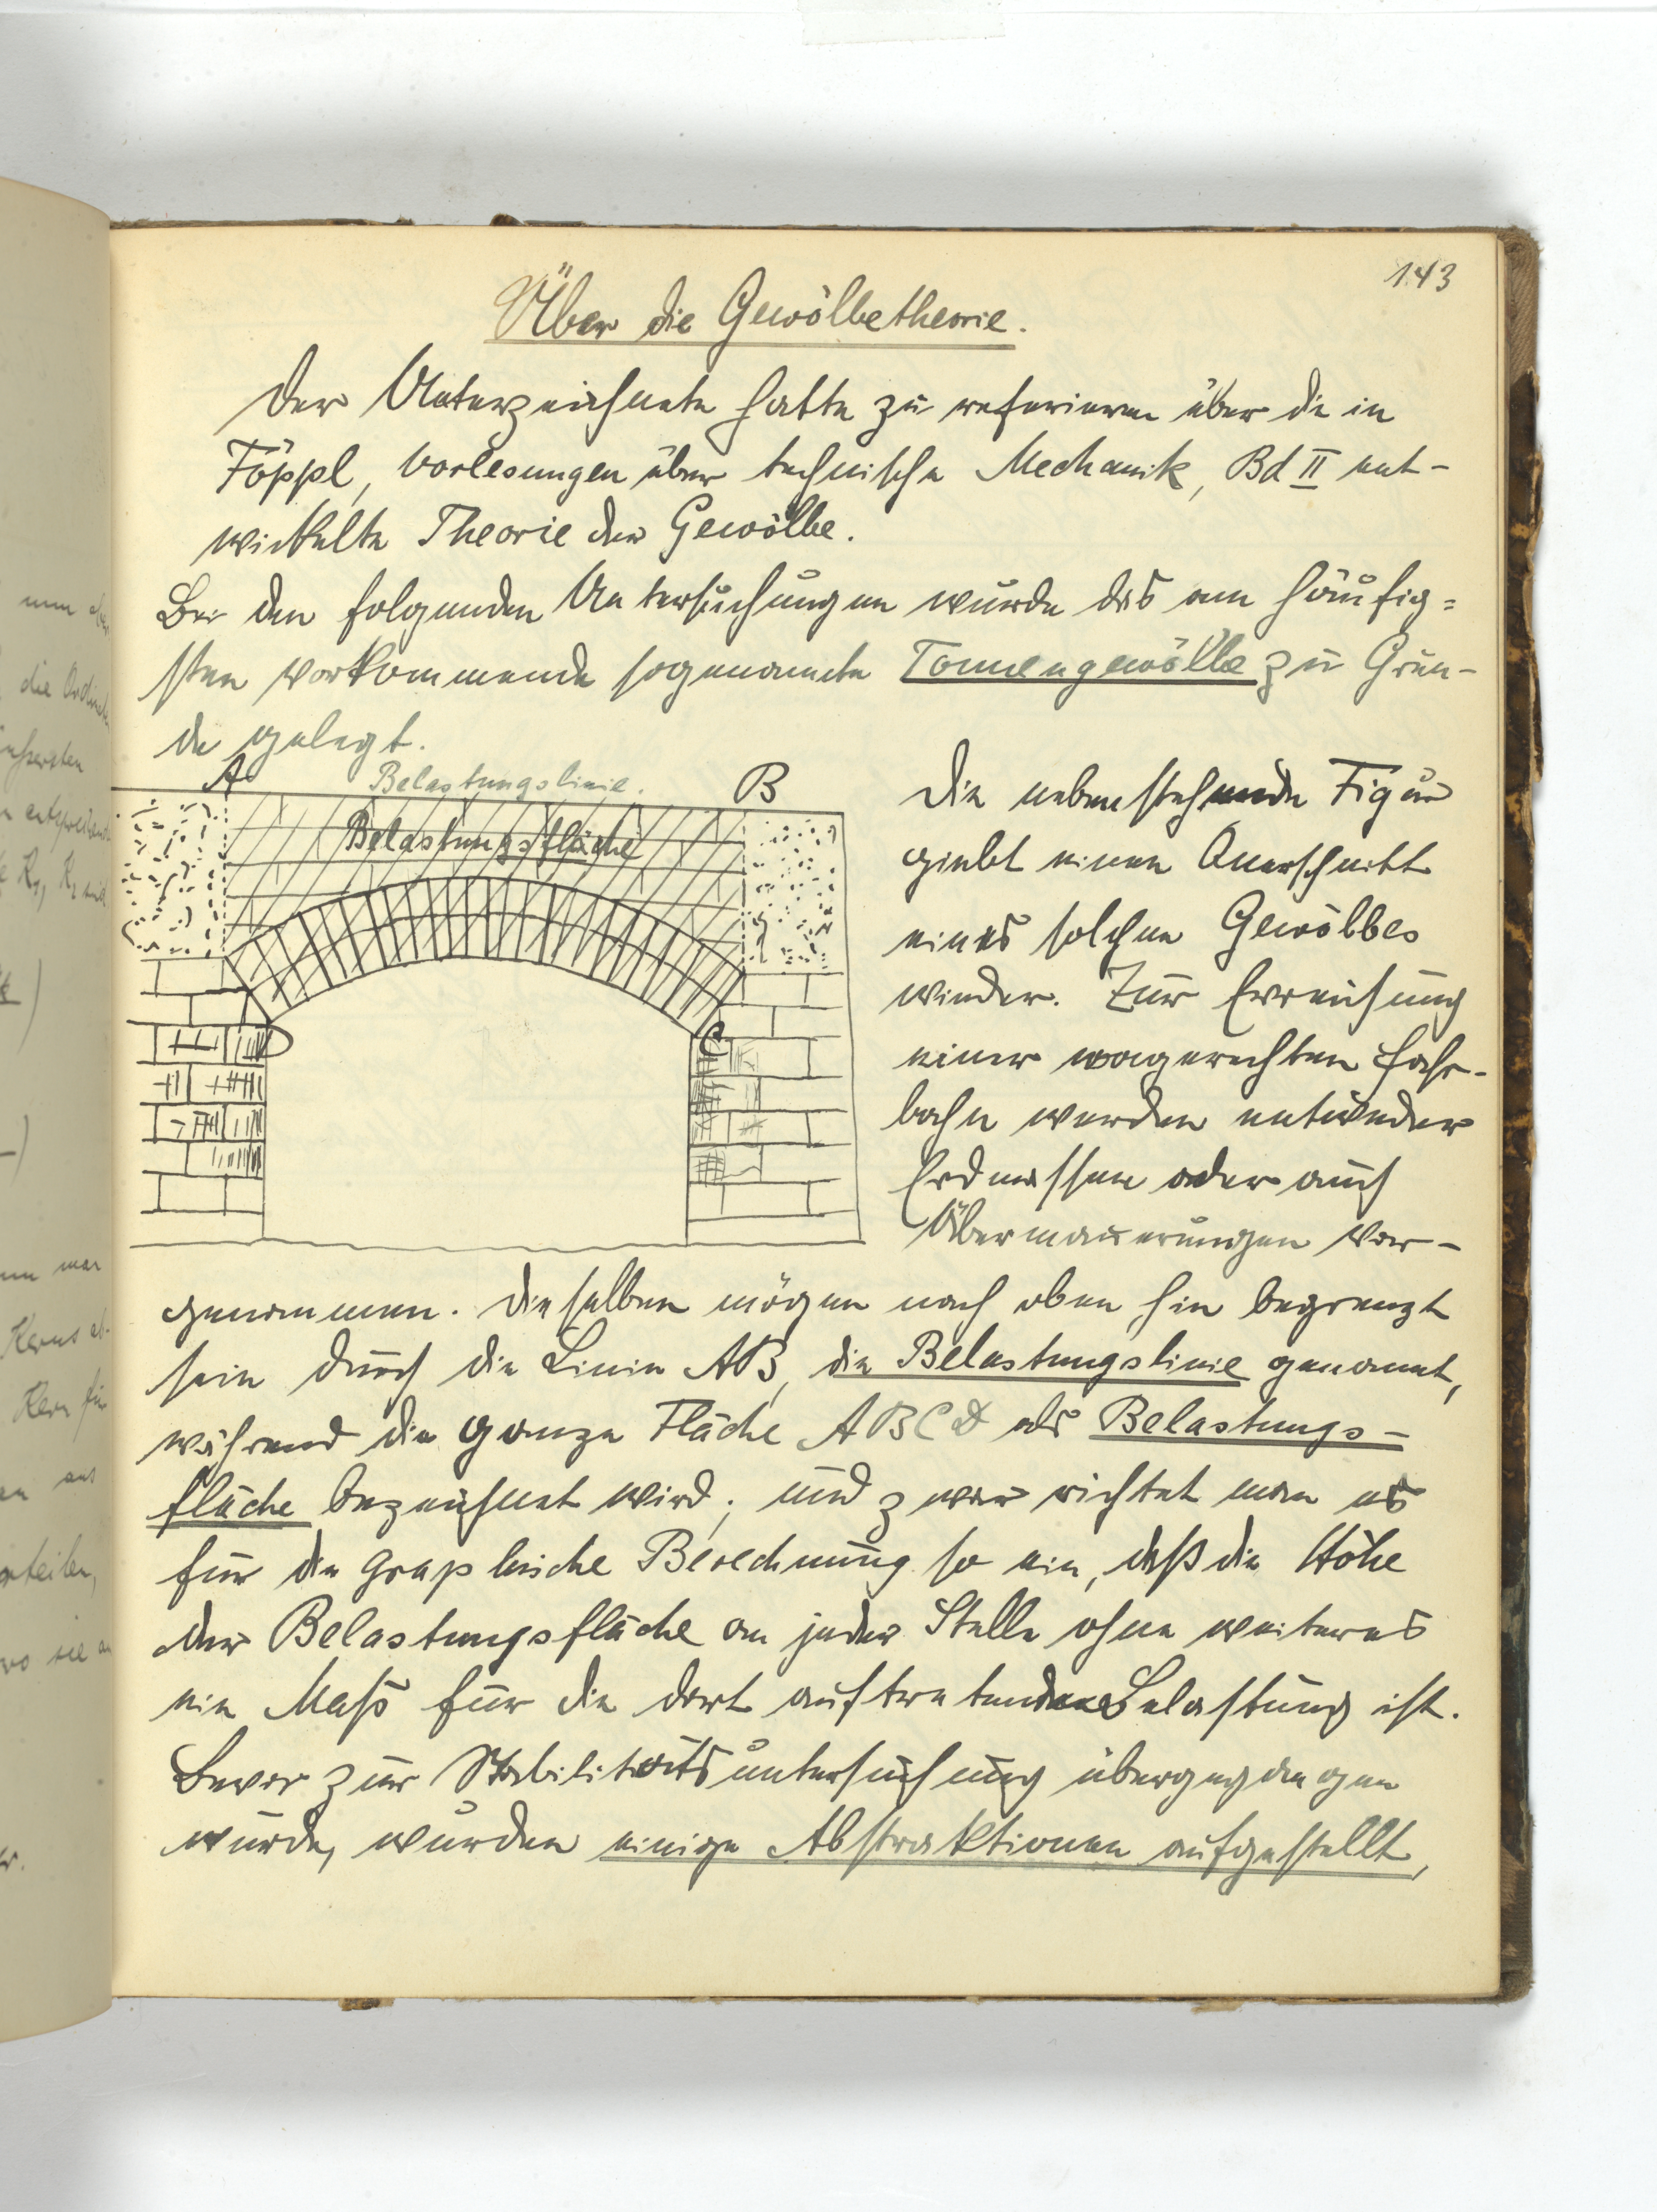 143
Über die Gewölbetheorie.
Der Unterzeichnete hatte zu referieren über die in
Föppl, Vorlesungen über technische Mechanik, Bd II ent-
wickelte Theorie der Gewölbe.
Bei den folgenden Untersuchungen wurde das am häufig=
sten vorkommende sogenannte Tonnengewölbe zu Grun-
de gelegt.
A Belastungslinie. B
Belastungsfläche
D
C
Die nebenstehende Figur
giebt einen Querschnitt
eines solchen Gewölbes
wieder. Zur Erreichung
einer wagerechten Fahr-
bahn werden entweder
Erdmassen oder auch
Übermauerungen vor-
genommen. Dieselben mögen nach oben hin begrenzt
sein durch die Linie AB, die Belastungslinie genannt,
während die ganze Fläche ABCD als Belastungs-
fläche bezeichnet wird; und zwar richtet man es
für die graphische Berechnung so ein, daß die Höhe
der Belastungsfläche an jeder Stelle ohne weiteres
ein Maß für die dort auftretende Belastung ist.
Bevor zur Stabilitätsuntersuchung übergegangen
wurde, wurden einige Abstraktionen aufgestellt,
nun
die
äußersten
K₁, K₂ sind
war
Kerns
Kern für
aus
wo sie